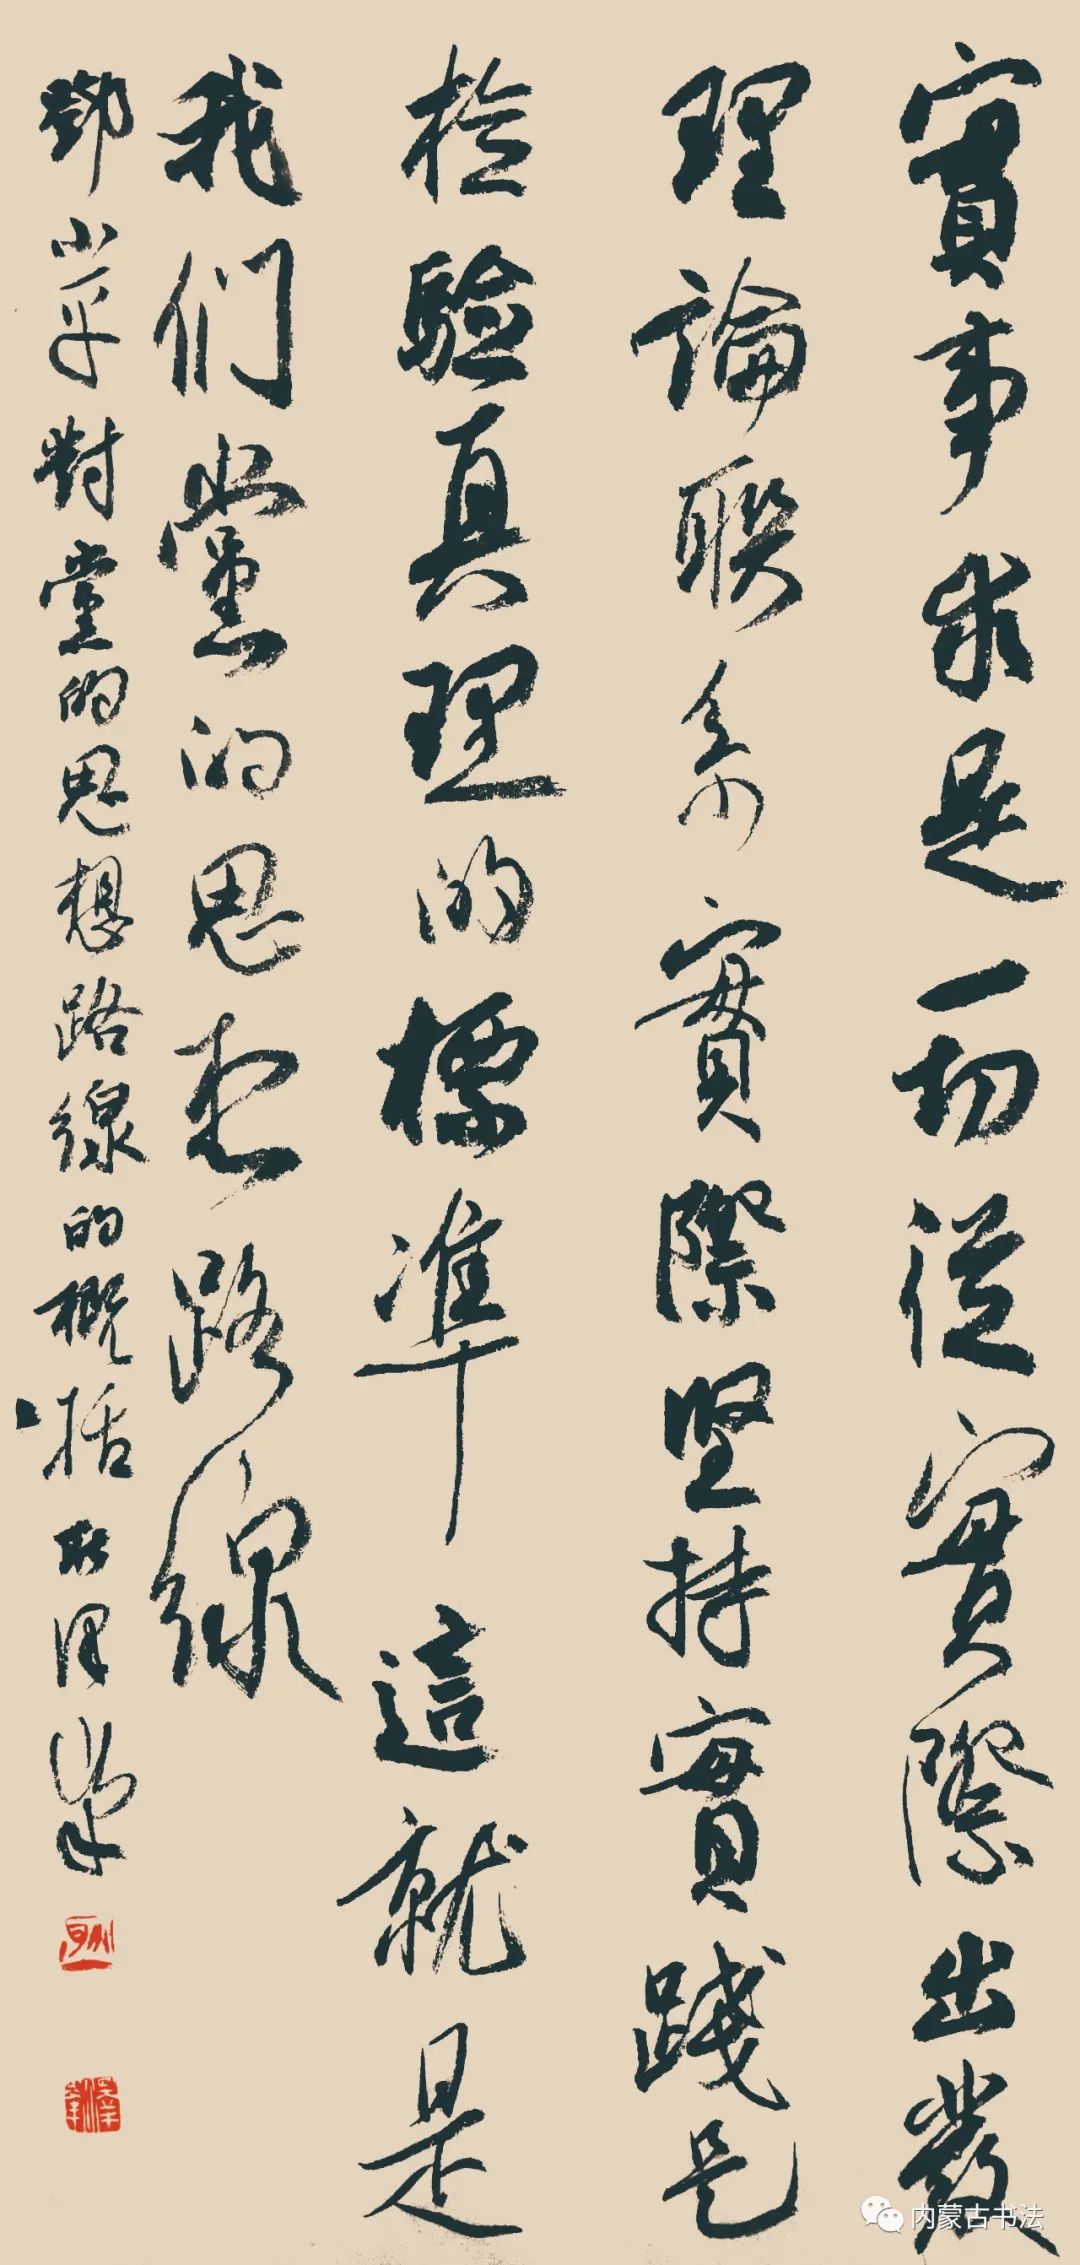 實事求是一切從實際出發
理論聯系實際坚持實踐是
檢驗真理的標準這就是
我们黨的思想路線
鄧小平對党的思想路線的概括 耿泽峯
内蒙古书法